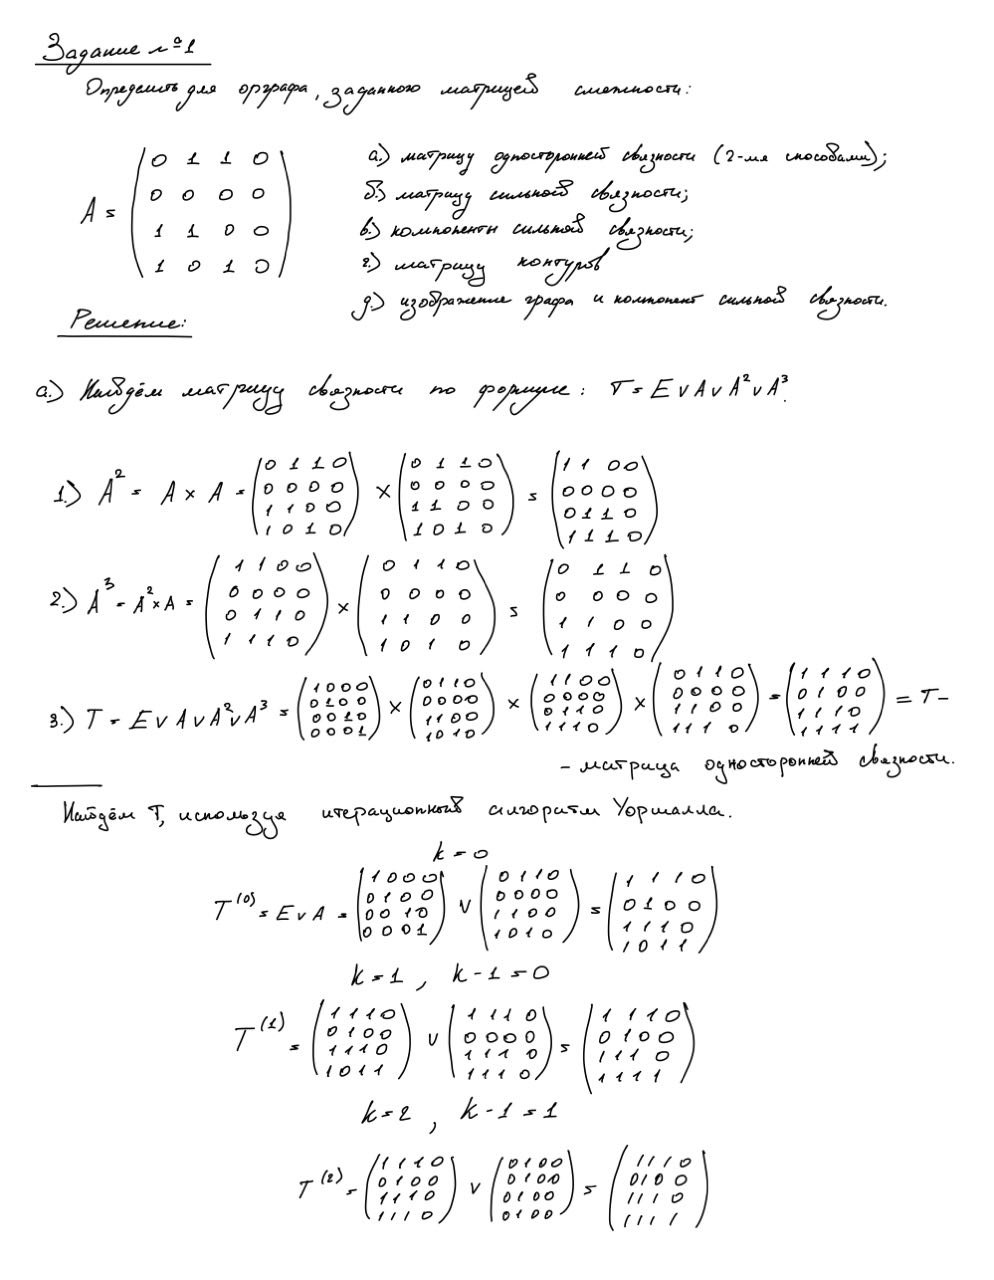 Задание №1
Определить для орграфа, заданного матрицей смежности:
A = (0 1 1 0
0 0 0 0
1 1 0 0
1 0 1 0)
а.) матрицу односторонней связности (2-мя способами);
б.) матрицу сильной связности;
в.) компоненты сильной связности;
г.) матрицу контуров
д.) изображение графа и компонент сильной связности.
Решение:
а.) Найдём матрицу связности по формуле: T = E ∨ A ∨ A² ∨ A³.
1.) A² = A × A = (0 1 1 0
0 0 0 0
1 1 0 0
1 0 1 0) × (0 1 1 0
0 0 0 0
1 1 0 0
1 0 1 0) = (1 1 0 0
0 0 0 0
0 1 1 0
1 1 1 0)
2.) A³ = A² × A = (1 1 0 0
0 0 0 0
0 1 1 0
1 1 1 0) × (0 1 1 0
0 0 0 0
1 1 0 0
1 0 1 0) = (0 1 1 0
0 0 0 0
1 1 0 0
1 1 1 0)
3.) T = E ∨ A ∨ A² ∨ A³ = (1 0 0 0
0 1 0 0
0 0 1 0
0 0 0 1) × (0 1 1 0
0 0 0 0
1 1 0 0
1 0 1 0) × (1 1 0 0
0 0 0 0
0 1 1 0
1 1 1 0) × (0 1 1 0
0 0 0 0
1 1 0 0
1 1 1 0) = (1 1 1 0
0 1 0 0
1 1 1 0
1 1 1 1) = T –
– матрица односторонней связности.
Найдём T, используя итерационный алгоритм Уоршалла.
k = 0
T⁽⁰⁾ = E ∨ A = (1 0 0 0
0 1 0 0
0 0 1 0
0 0 0 1) ∨ (0 1 1 0
0 0 0 0
1 1 0 0
1 0 1 0) = (1 1 1 0
0 1 0 0
1 1 1 0
1 0 1 1)
k = 1, k - 1 = 0
T⁽¹⁾ = (1 1 1 0
0 1 0 0
1 1 1 0
1 0 1 1) ∨ (1 1 1 0
0 0 0 0
1 1 1 0
1 1 1 0) = (1 1 1 0
0 1 0 0
1 1 1 0
1 1 1 1)
k = 2, k - 1 = 1
T⁽²⁾ = (1 1 1 0
0 1 0 0
1 1 1 0
1 1 1 0) ∨ (0 1 0 0
0 1 0 0
0 1 0 0
0 1 0 0) = (1 1 1 0
0 1 0 0
1 1 1 0
1 1 1 1)